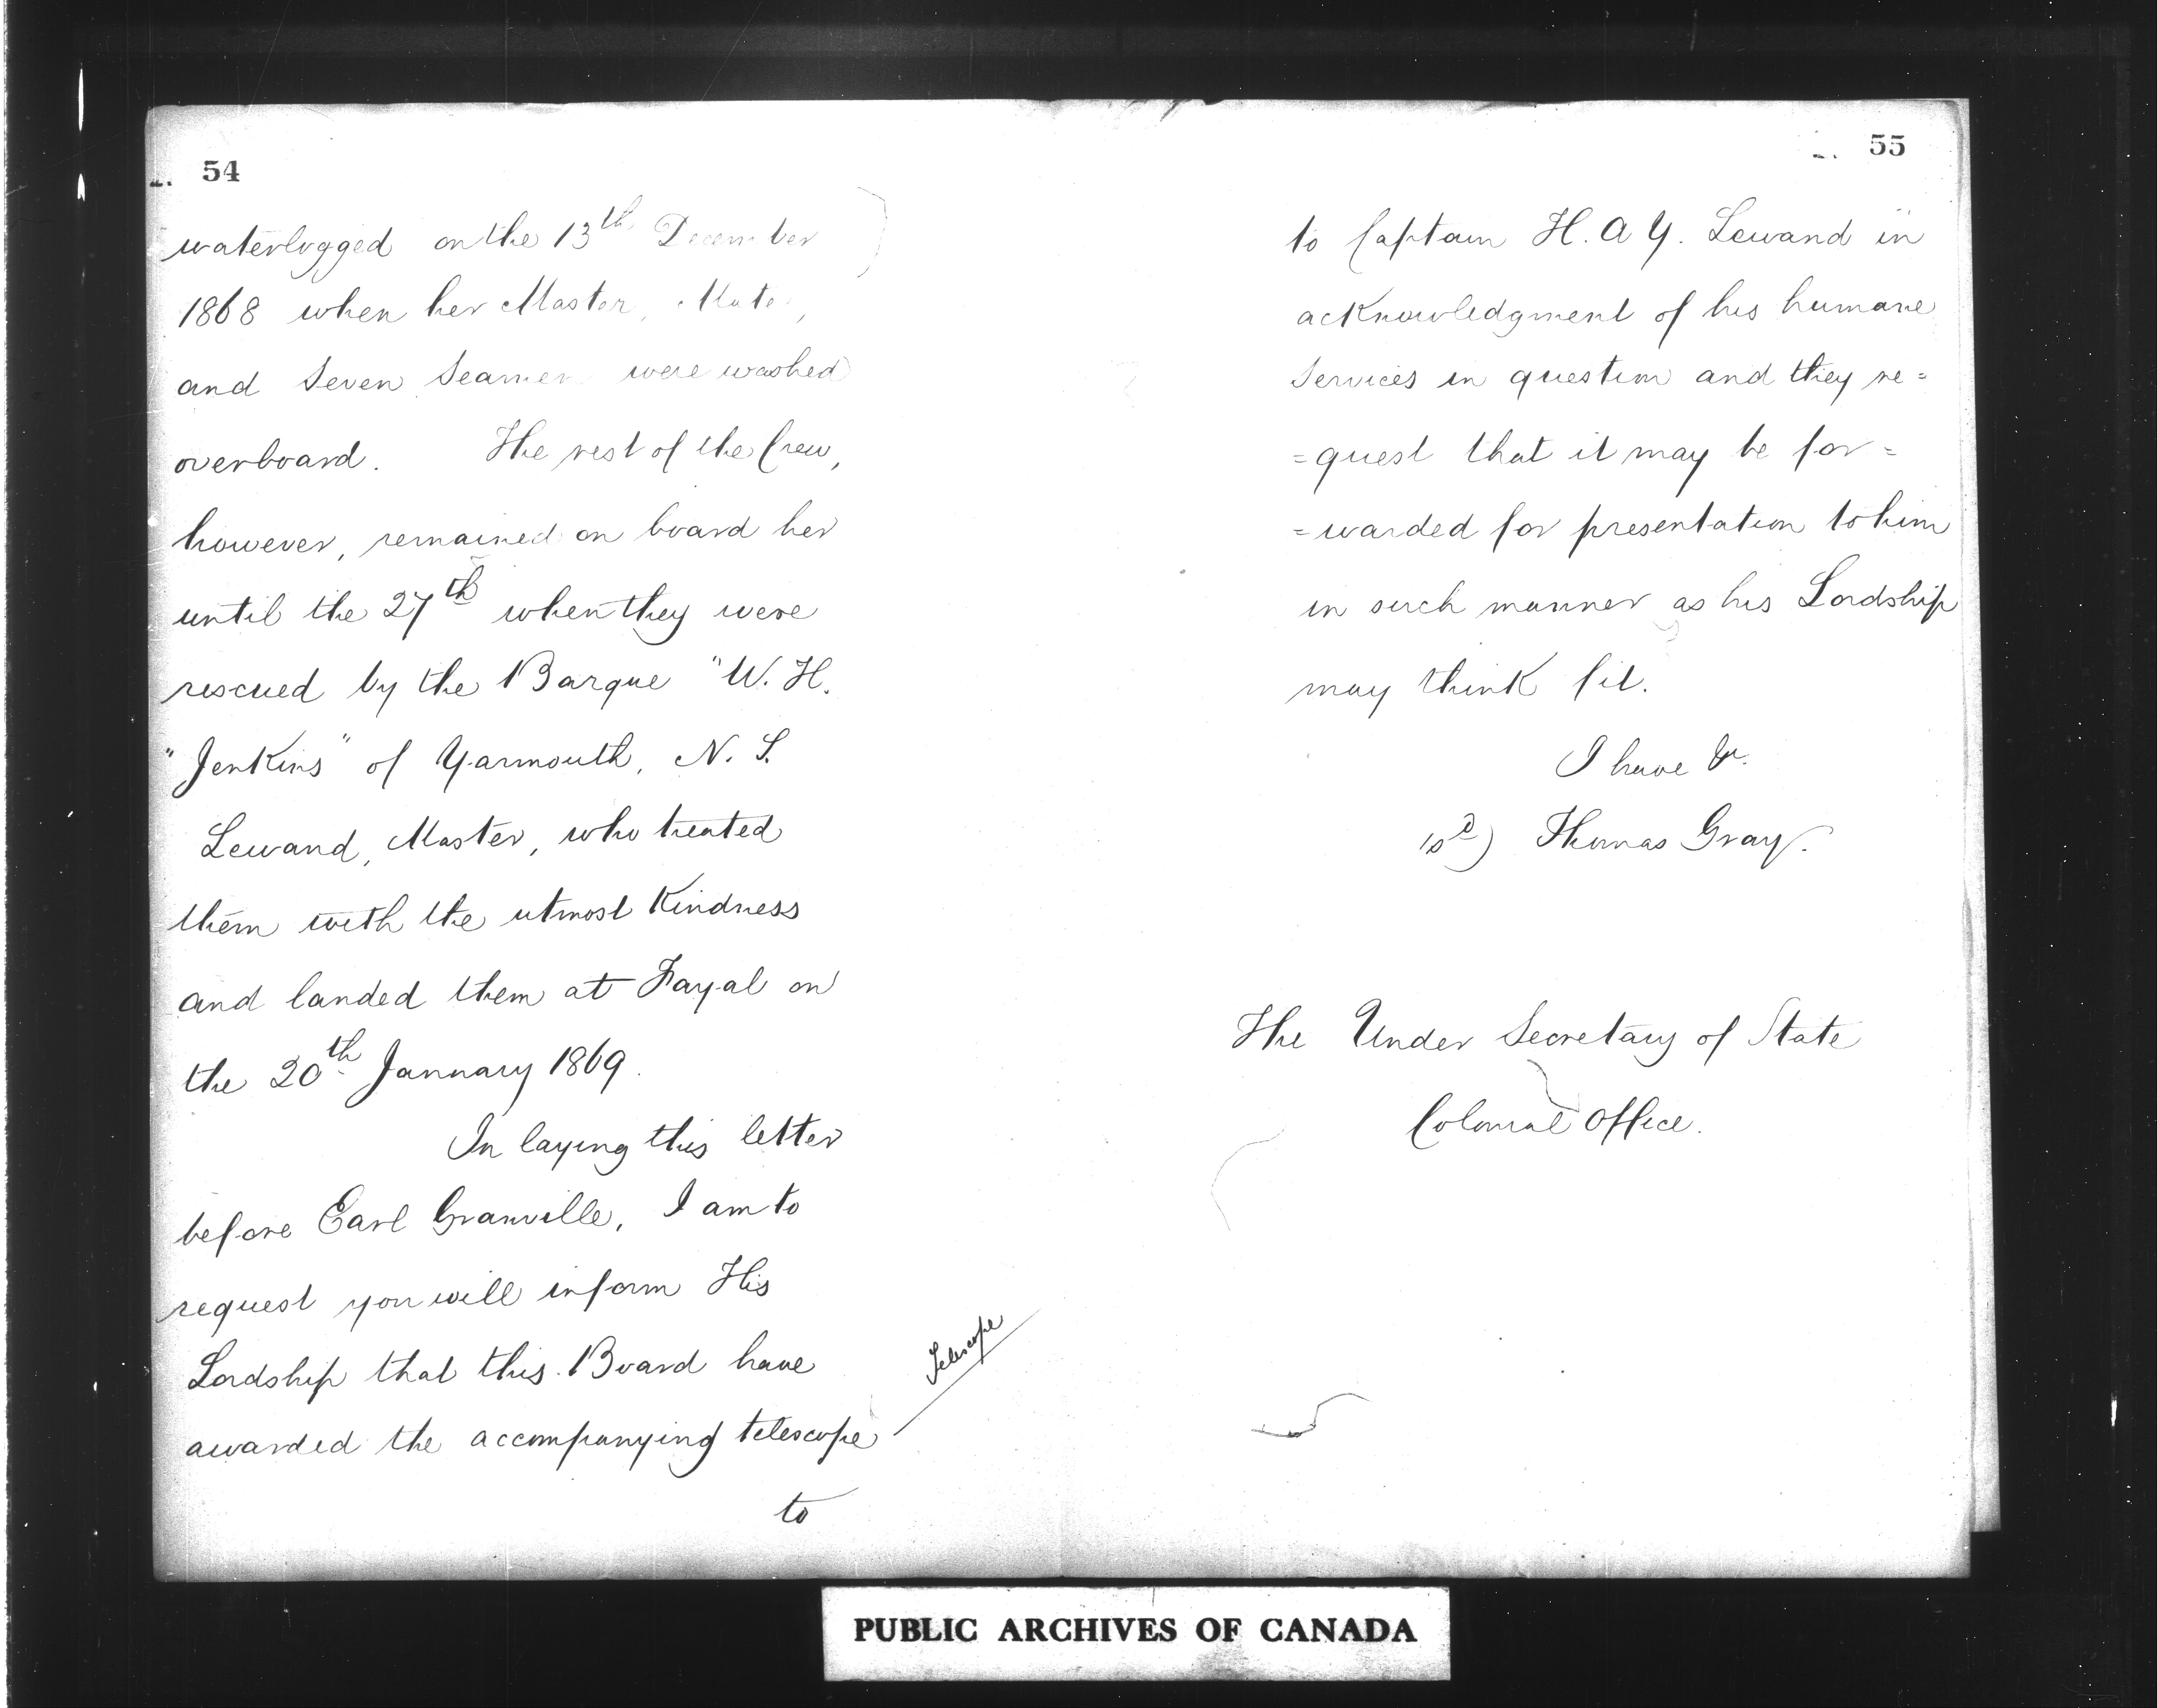 54
waterlogged on the 13th December
1868 when her Master, Mate,
and Seven Seamen were washed
overboard. The rest of the Crew,
however, remained on board her
until the 27th when they were
rescued by the Barque "W. H.
"Jenkins" of Yarmouth, N. S.
Lewand, Master, who treated
them with the utmost Kindness
and landed them at Fayal on
the 20th January 1869.
In laying this letter
before Earl Granville, I am to
request you will inform His
Lordship that this Board have
awarded the accompanying telescope
to
Telescope
55
to Captain H. A Y. Lewand in
acknowledgment of his humane
Services in question and they re=
=quest that it may be for=
=warded for presentation to him
in such manner as his Lordship
may think fit.
I have &c.
(sd) Thomas Gray.
The Under Secretary of State
Colonial Office.
PUBLIC ARCHIVES OF CANADA